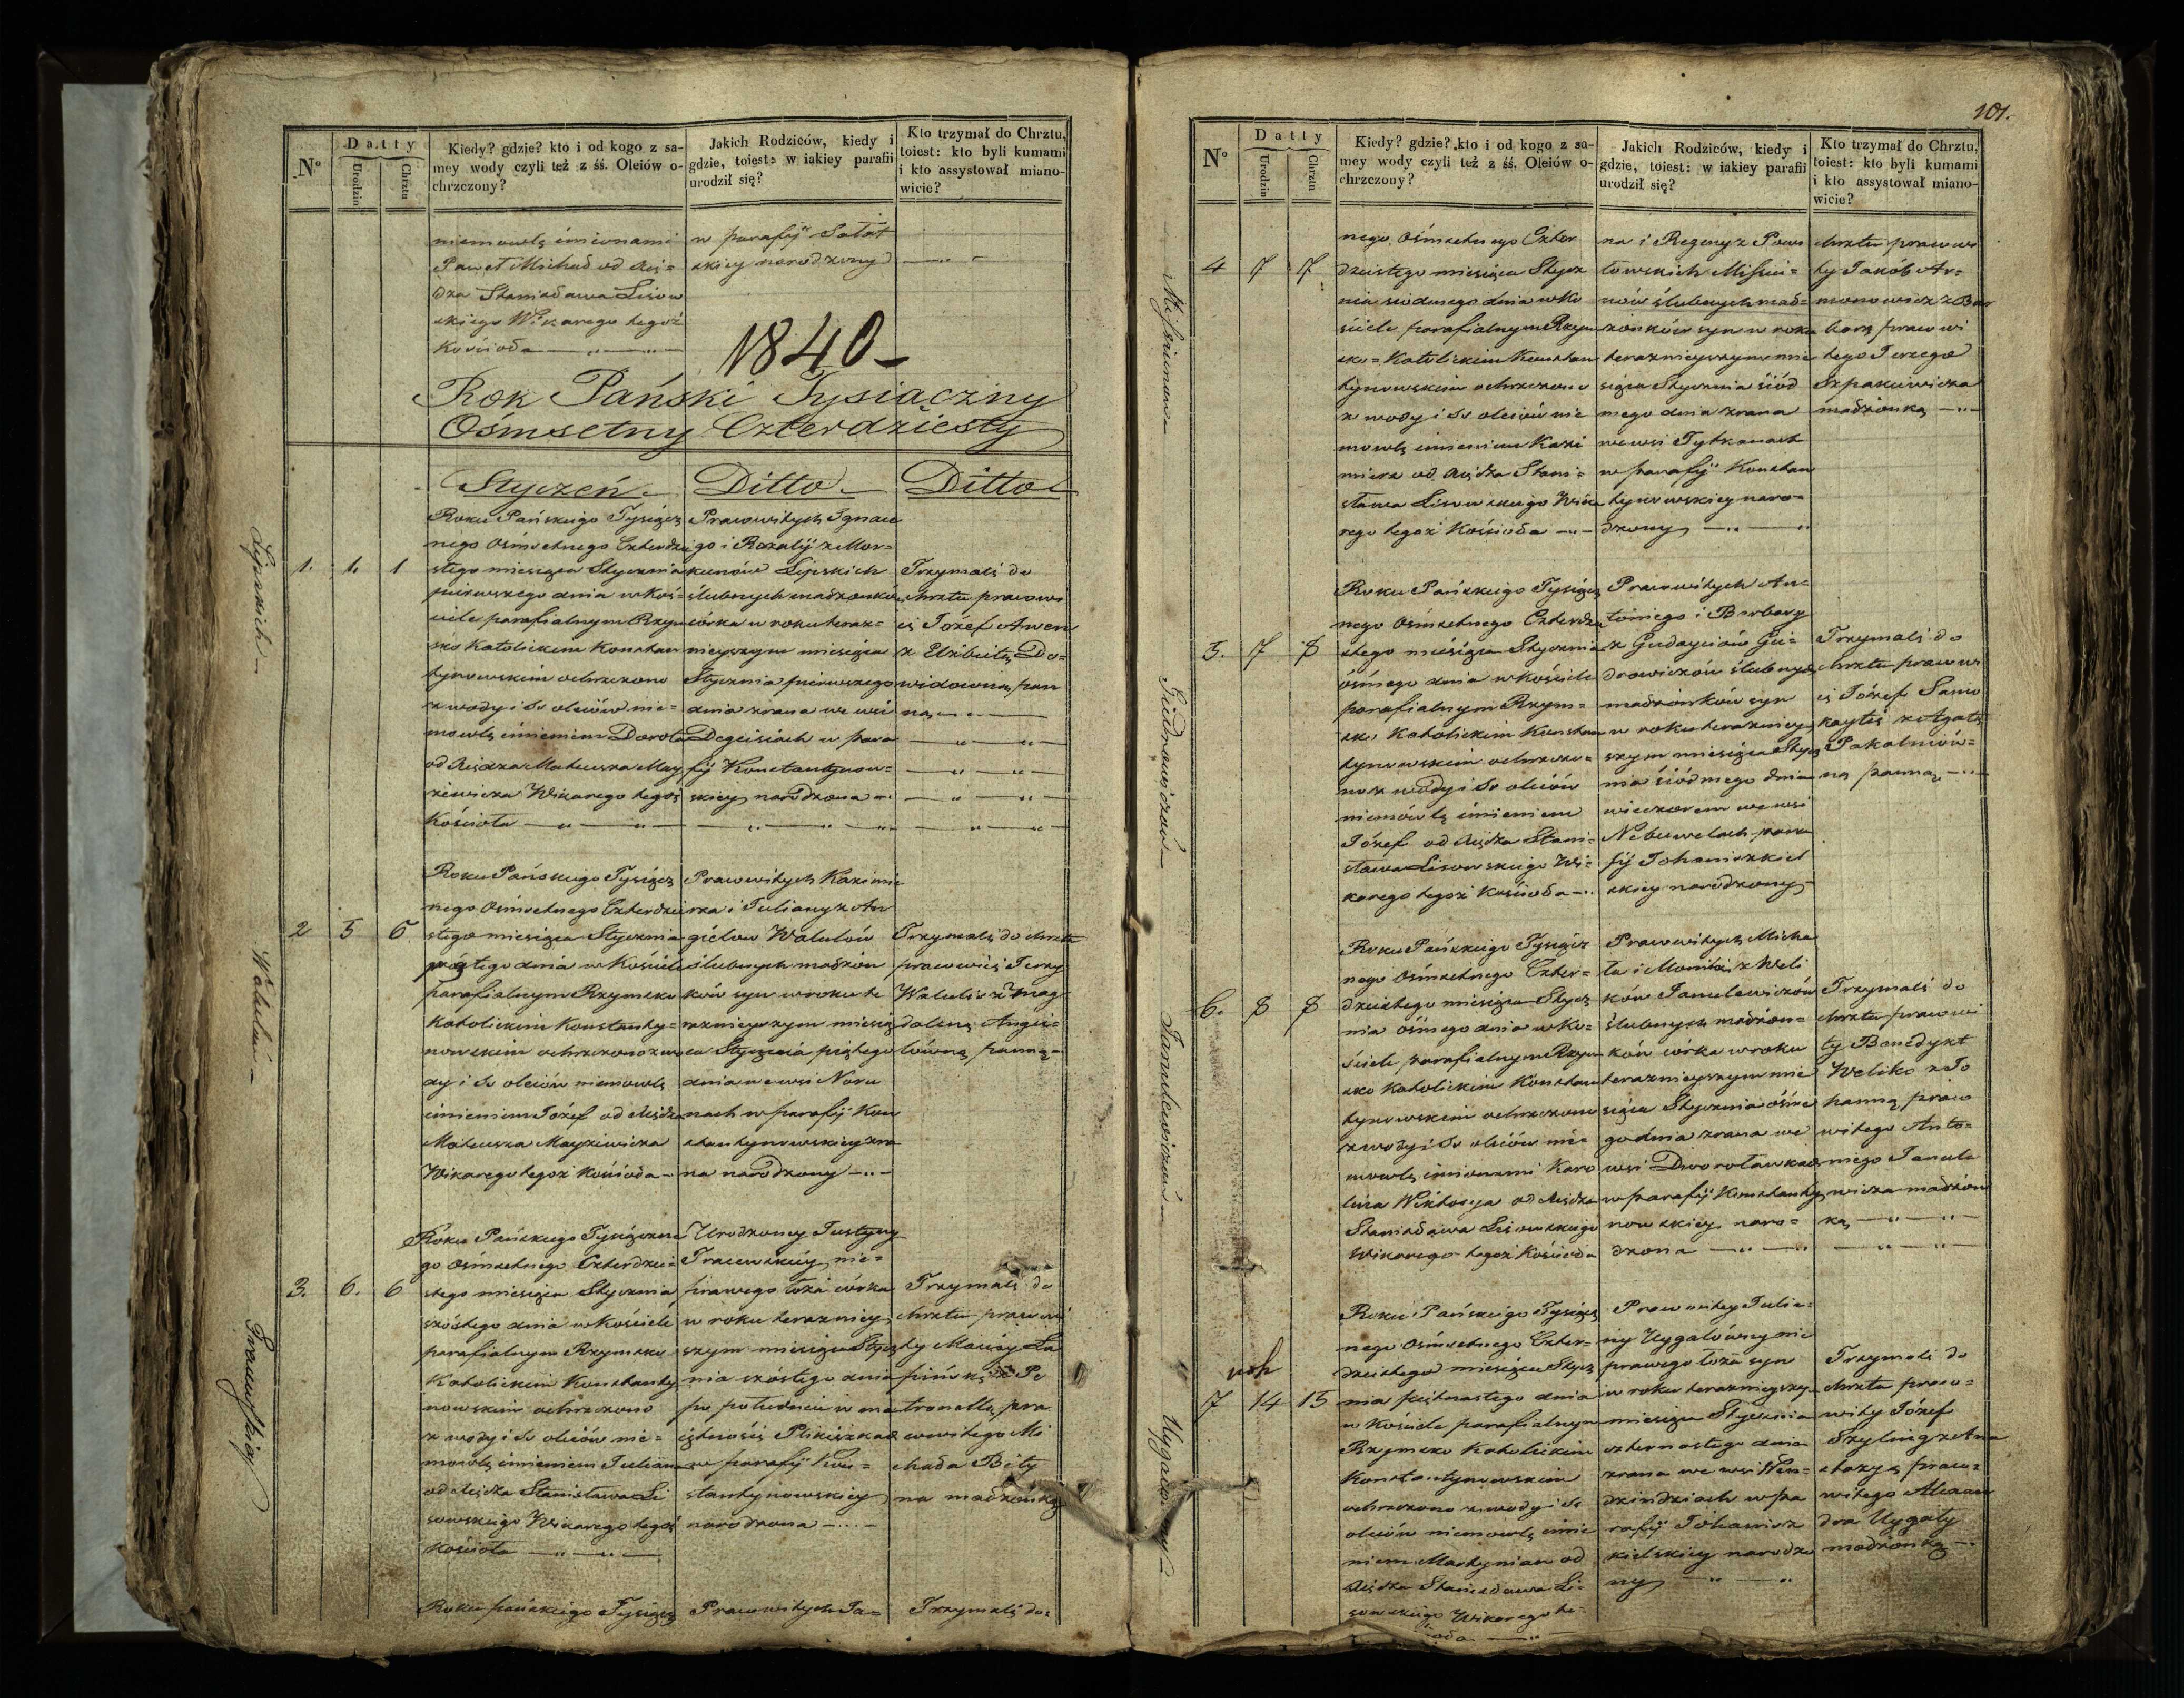 Nº
Datty
Urodzin
Chrztu
Kiedy? gdzie? kto i od kogo z sa-
mey wody czyli też z śś. Oleiów o-
chrzczony?
Jakich Rodziców, kiedy i
gdzie, toiest: w iakiey parafii
urodził się?
Kto trzymał do Chrztu,
toiest: kto byli kumami
i kto assystował miano-
wicie?
niemowlę imionami
Paweł Michał od Xię=
dza Stanisława Lisow
skiego Wikarego tegoż
Kościoła
w parafij Sałat
skiey narodzony
1840
Rok Pański Tysiączny
Ośmsetny Czterdziesty
Styczeń
Ditto
Ditto
Lipskich
1. 1. 1
Roku Pańskiego Tysiącz
nego Ośmsetnego Czterdzie
stego miesiąca Stycznia
pierwszego dnia w Koś=
ciele parafialnym Rzym
sko Katolickim Konstan
tynowskim ochrzczono
z wody i SS oleiów nie=
mowlę imieniem Dorota
od Xiędza Mateusza May
ziewicza Wikarego tegoż
Kościoła
Prawowitych Ignace
go i Rozalij z Mor=
kunów Lipskich
ślubnych małżonków
córka w roku teraz=
nieyszym miesiąca
Stycznia pierwszego
dnia zrana we wsi
Degisiach w para
fij Konstantynow=
skiey narodzona
Trzymali do
chrztu prawowi
ci Józef Awen
z Elżbietą Do=
widowną pan
ną
Walulów
2 5 5
Roku Pańskiego Tysiącz
nego Ośmsetnego Czterdzie
stego miesiąca Stycznia
piątego dnia w Kościele
parafialnym Rzymsko
Katolickim Konstanty=
nowskim ochrzczono z wo
dy i SS oleiów niemowlę
imieniem Józef od Xiędza
Mateusza Mayziewicza
Wikarego tegoż Kościoła
Prawowitych Kazimie
rza i Julianny z An
giełow Walulów
ślubnych małżon
ków syn w roku te
raznieyszym miesią
ca Stycznia piątego
dnia we wsi Noru
nach w parafij Kon
stantynowskiey zra
na narodzony
Trzymali do chrztu
prawowici Jerzy
Walulis z Mag
daleną Angie=
łówną panną
Tracewskiey
3. 6. 6
Roku Pańskiego Tysiączne
go Ośmsetnego Czterdzie=
stego miesiąca Stycznia
szóstego dnia w Kościele
parafialnym Rzymsko
Katolickim Konstanty
nowskim ochrzczono
z wody i SS oleiów nie=
mowlę imieniem Julianna
od Xiędza Stanisława Li
sowskiego Wikarego tegoż
Kościoła
Urodzoney Justyny
Tracewskiey nie=
prawego łoża córka
w roku terazniey
szym miesiąca Stycz
nia szóstego dnia
po południu w ma
iętności Plikiszkach
w parafij Kon=
stantynowskiey
narodzona
Trzymali do
chrztu prawowi
ty Maciey Ła
piński z Pe
tronellą pra
wowitego Mi
chała Bity
na małżonką
Roku pańskiego Tysiącz
Prawowitych Ja=
Trzymali do=
101.
Nº
Datty
Urodzin
Chrztu
Kiedy? gdzie? kto i od kogo z sa-
mey wody czyli też z śś. Oleiów o-
chrzczony?
Jakich Rodziców, kiedy i
gdzie, toiest: w iakiey parafii
urodził się?
Kto trzymał do Chrztu,
toiest: kto byli kumami
i kto assystował miano-
wicie?
Missiunów
4 7 7
nego Ośmsetnego Czter
dziestego miesiąca Stycz
nia siódmego dnia w Ko
ściele parafialnym Rzym
sko=Katolickim Konstan
tynowskim ochrzczono
z wody i SS oleiów nie
mowlę imieniem Kazi
mierz od Xiędza Stani=
sława Lisowskiego Wika
rego tegoż Kościoła
na i Reginy z Pow
łowskich Missiu=
nów ślubnych mał=
żonków syn w roku
teraznieyszym mie
siąca Stycznia siód
mego dnia zrana
we wsi Tytkanach
w parafij Konstan
tynowskiey naro=
dzony
chrztu prawowi
ty Jakób Ar=
monowicz z Bar
barą prawowi
tego Jerzego
Szpakiewicza
małżonką
Giedrowiczów
5. 7 8
Roku Pańskiego Tysiącz
nego Ośmsetnego Czterdzie
stego miesiąca Stycznia
ósmego dnia w Kościele
parafialnym Rzym=
sko Katolickim Konstan
tynowskim ochrzczo=
no z wody i SS oleiów
niemowlę imieniem
Józef od Xiędza Stani=
sława Lisowskiego Wi=
karego tegoż Kościoła
Prawowitych An=
toniego i Barbary
z Gudayciów Gie=
drowiczów ślubnych
małżonków syn
w roku terazniey
szym miesiąca Stycz
nia siódmego dnia
wieczorem we wsi
Nebuwelach para
fij Johaniszkiel
skiey narodzony
Trzymali do
chrztu prawowi
ci Józef Sanw
kaytis z Agatą
Pakalniów=
ną panną
Janulewiczów
6. 8 8
Roku Pańskiego Tysiącz
nego Ośmsetnego Czter=
dziestego miesiąca Stycz
nia ósmego dnia w Ko=
ściele parafialnym Rzym
sko Katolickim Konstan
tynowskim ochrzczono
z wody i SS oleiów nie=
mowlę imionami Karo
lina Wiktorya od Xiędza
Stanisława Lisowskiego
Wikarego tegoż Kościoła
Prawowitych Micha
ła i Moniki z Weli
ków Janulewiczów
ślubnych małżon=
ków córka w roku
teraznieyszym mie
siąca Stycznia ósme
go dnia zrana we
wsi Dworoławkach
w parafij Konstanty
nowskiey naro=
dzona
Trzymali do
chrztu prawowi
ty Benedykt
Weliko z Jo
hanną prawo
witego Anto=
niego Janule
wicza małżon
ką
Uygałowny
noh
7 14 15
Roku Pańskiego Tysiącz
nego Ośmsetnego Czter=
dziestego miesiąca Stycz
nia piętnastego dnia
w Kościele parafialnym
Rzymsko Katolickim
Konstantynowskim
ochrzczono z wody i SS
oleiów niemowlę imie
niem Martynian od
Xiędza Stanisława Li=
sowskiego Wikarego te=
Prawowitey Julia=
ny Uygalówny nie
prawego łoża syn
w roku teraznieyszy
miesiąca Stycznia
czternastego dnia
zrana we wsi Wen=
dzindziach w pa
rafij Johanisz
kielskiey narodzo
ny
Trzymali do
chrztu prawo=
wity Józef
Szyling z Ana
stazyą prawo=
witego Alexan
dra Uygały
małżonką